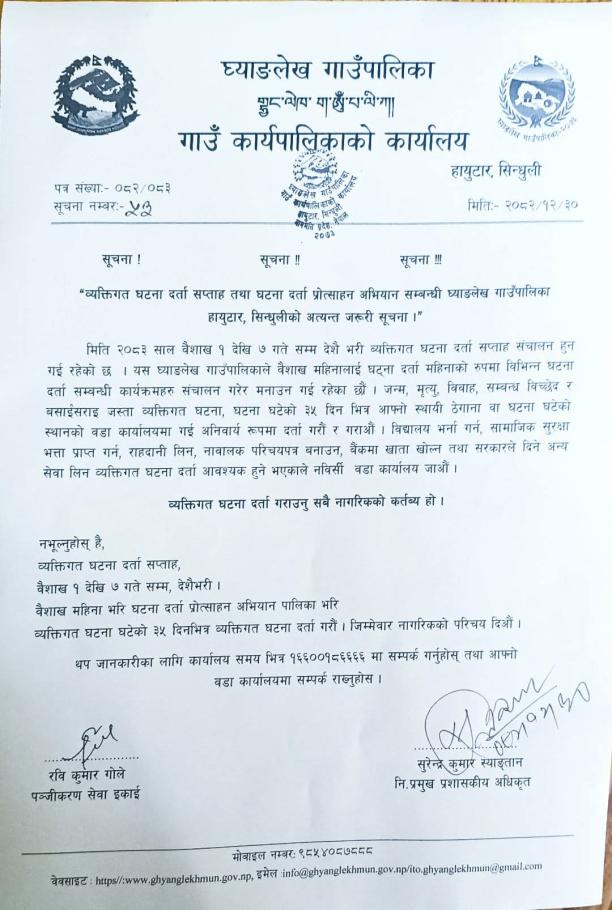 घ्याङलेख गाउँपालिका
गाउँ कार्यपालिकाको कार्यालय
हायुटार, सिन्धुली
पत्र संख्याः- ०८२/०८३
सूचना नम्बरः- ५३
मितिः- २०८२/१२/३०
घ्याङलेख गाउँपालिका
गाउँ कार्यपालिकाको कार्यालय
हायुटार, सिन्धुली
२०७३
सूचना ! सूचना !! सूचना !!!
"व्यक्तिगत घटना दर्ता सप्ताह तथा घटना दर्ता प्रोत्साहन अभियान सम्बन्धी घ्याङलेख गाउँपालिका
हायुटार, सिन्धुलीको अत्यन्त जरूरी सूचना ।"
मिति २०८३ साल वैशाख १ देखि ७ गते सम्म देशै भरी व्यक्तिगत घटना दर्ता सप्ताह संचालन हुन
गई रहेको छ । यस घ्याङलेख गाउँपालिकाले वैशाख महिनालाई घट्ना दर्ता महिनाको रुपमा विभिन्न घटना
दर्ता सम्बन्धी कार्यक्रमहरु संचालन गरेर मनाउन गई रहेका छौं । जन्म, मृत्यु, विवाह, सम्बन्ध विच्छेद र
बसाईसराइ जस्ता व्यक्तिगत घटना, घटना घटेको ३५ दिन भित्र आफ्नो स्थायी ठेगाना वा घटना घटेको
स्थानको वडा कार्यालयमा गई अनिवार्य रूपमा दर्ता गरौं र गराऔं । विद्यालय भर्ना गर्न, सामाजिक सुरक्षा
भत्ता प्राप्त गर्न, राहदानी लिन, नावालक परिचयपत्र बनाउन, बैंकमा खाता खोल्न तथा सरकारले दिने अन्य
सेवा लिन व्यक्तिगत घटना दर्ता आवश्यक हुने भएकाले नविर्सी वडा कार्यालय जाऔं ।
व्यक्तिगत घटना दर्ता गराउनु सबै नागरिकको कर्तब्य हो ।
नभूल्नुहोस् है,
व्यक्तिगत घटना दर्ता सप्ताह,
वैशाख १ देखि ७ गते सम्म, देशैभरी ।
वैशाख महिना भरि घटना दर्ता प्रोत्साहन अभियान पालिका भरि
व्यक्तिगत घटना घटेको ३५ दिनभित्र व्यक्तिगत घटना दर्ता गरौं । जिम्मेवार नागरिकको परिचय दिऔं ।
थप जानकारीका लागि कार्यालय समय भित्र १६६००१८६६६६ मा सम्पर्क गर्नुहोस् तथा आफ्नो
वडा कार्यालयमा सम्पर्क राख्नुहोस ।
रवि कुमार गोले
पञ्जीकरण सेवा इकाई
सुरेन्द्र कुमार स्याङ्तान
नि.प्रमुख प्रशासकीय अधिकृत
मोबाइल नम्बर: ९८५४०८७८८८
वेवसाइट : https//:www.ghyanglekhmun.gov.np, इमेल :info@ghyanglekhmun.gov.np/ito.ghyanglekhmun@gmail.com